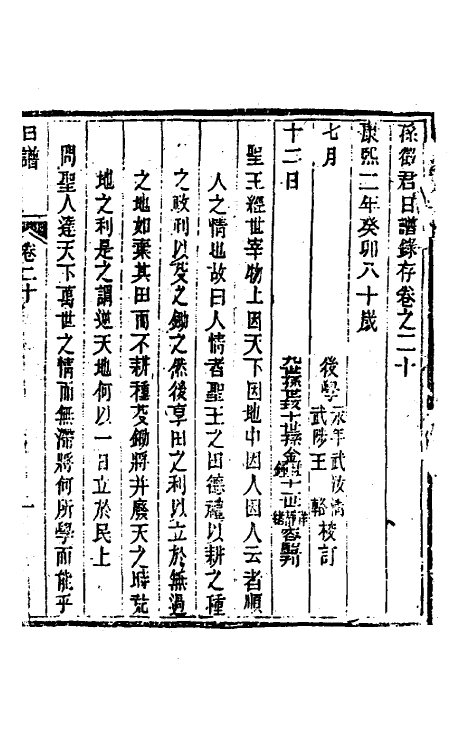 孫徵君日譜錄存卷之二十
康熙二年癸卯八十歲
七月
後學
永年武汝清
武陟王輅
校訂
十二日
聖王經世宰物上因天下因地中因人因人云者順
人之情也故曰人情者聖王之田德禮以耕之種
之政刑以芟之鋤之然後享田之利以立於無過
之地如棄其田而不耕種芟鋤將并廢天之時荒
地之利是之謂逆天地何以一日立於民上
問聖人達天下萬世之情而無滯將何所學而能乎
日譜
卷二十
一